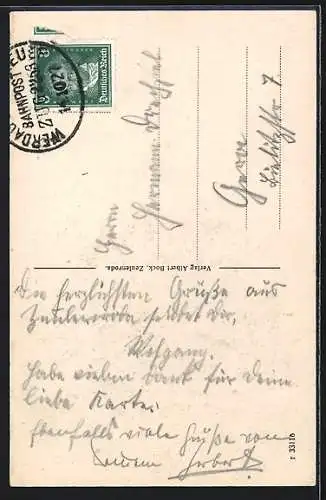 Deutsches Reich
BAHNPOST
WERDAU
ZUG
Herrn
Hermann
Gera
7
Verlag Albert Bock, Zeulenroda.
Die herzlichsten Grüße aus
Zeulenroda sendet dir,
Wolfgang.
Habe vielen Dank für deine
liebe Karte.
Ebenfalls viele Grüße von
deinem Herbert
r 33116